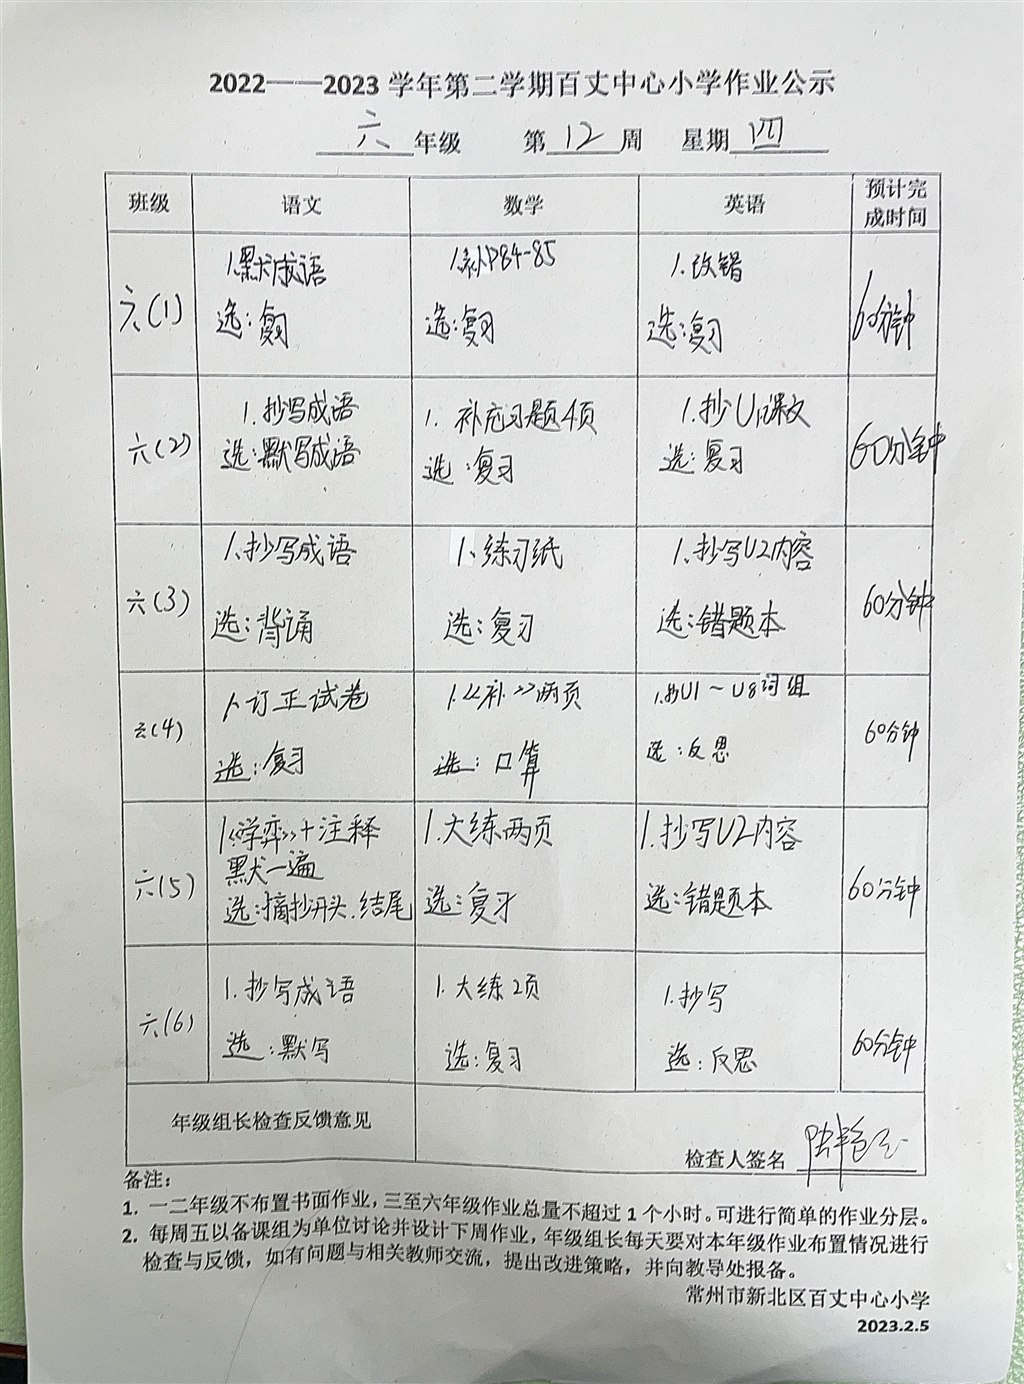 2022——2023 学年第二学期百丈中心小学作业公示
六年级 第12周 星期四
班级 语文 数学 英语 预计完成时间
六(1) 1.默成语 1.补P84-85 1.改错 60分钟
选:复习 选:复习 选:复习
六(2) 1.抄写成语 1.补充习题4页 1.抄U1课文 60分钟
选:默写成语 选:复习 选:复习
六(3) 1.抄写成语 1、练习纸 1.抄写U2内容 60分钟
选:背诵 选:复习 选:错题本
六(4) 1.订正试卷 1.《补》两页 1.抄U1~U8词组 60分钟
选:复习 选:口算 选:反思
六(5) 1.《学弈》+注释 1.大练两页 1.抄写U2内容 60分钟
默一遍
选:摘抄开头.结尾 选:复习 选:错题本
六(6) 1.抄写成语 1.大练2页 1.抄写 60分钟
选:默写 选:复习 选:反思
年级组长检查反馈意见
检查人签名
备注:
1. 一二年级不布置书面作业,三至六年级作业总量不超过 1 个小时。可进行简单的作业分层。
2. 每周五以备课组为单位讨论并设计下周作业,年级组长每天要对本年级作业布置情况进行
检查与反馈,如有问题与相关教师交流,提出改进策略,并向教导处报备。
常州市新北区百丈中心小学
2023.2.5